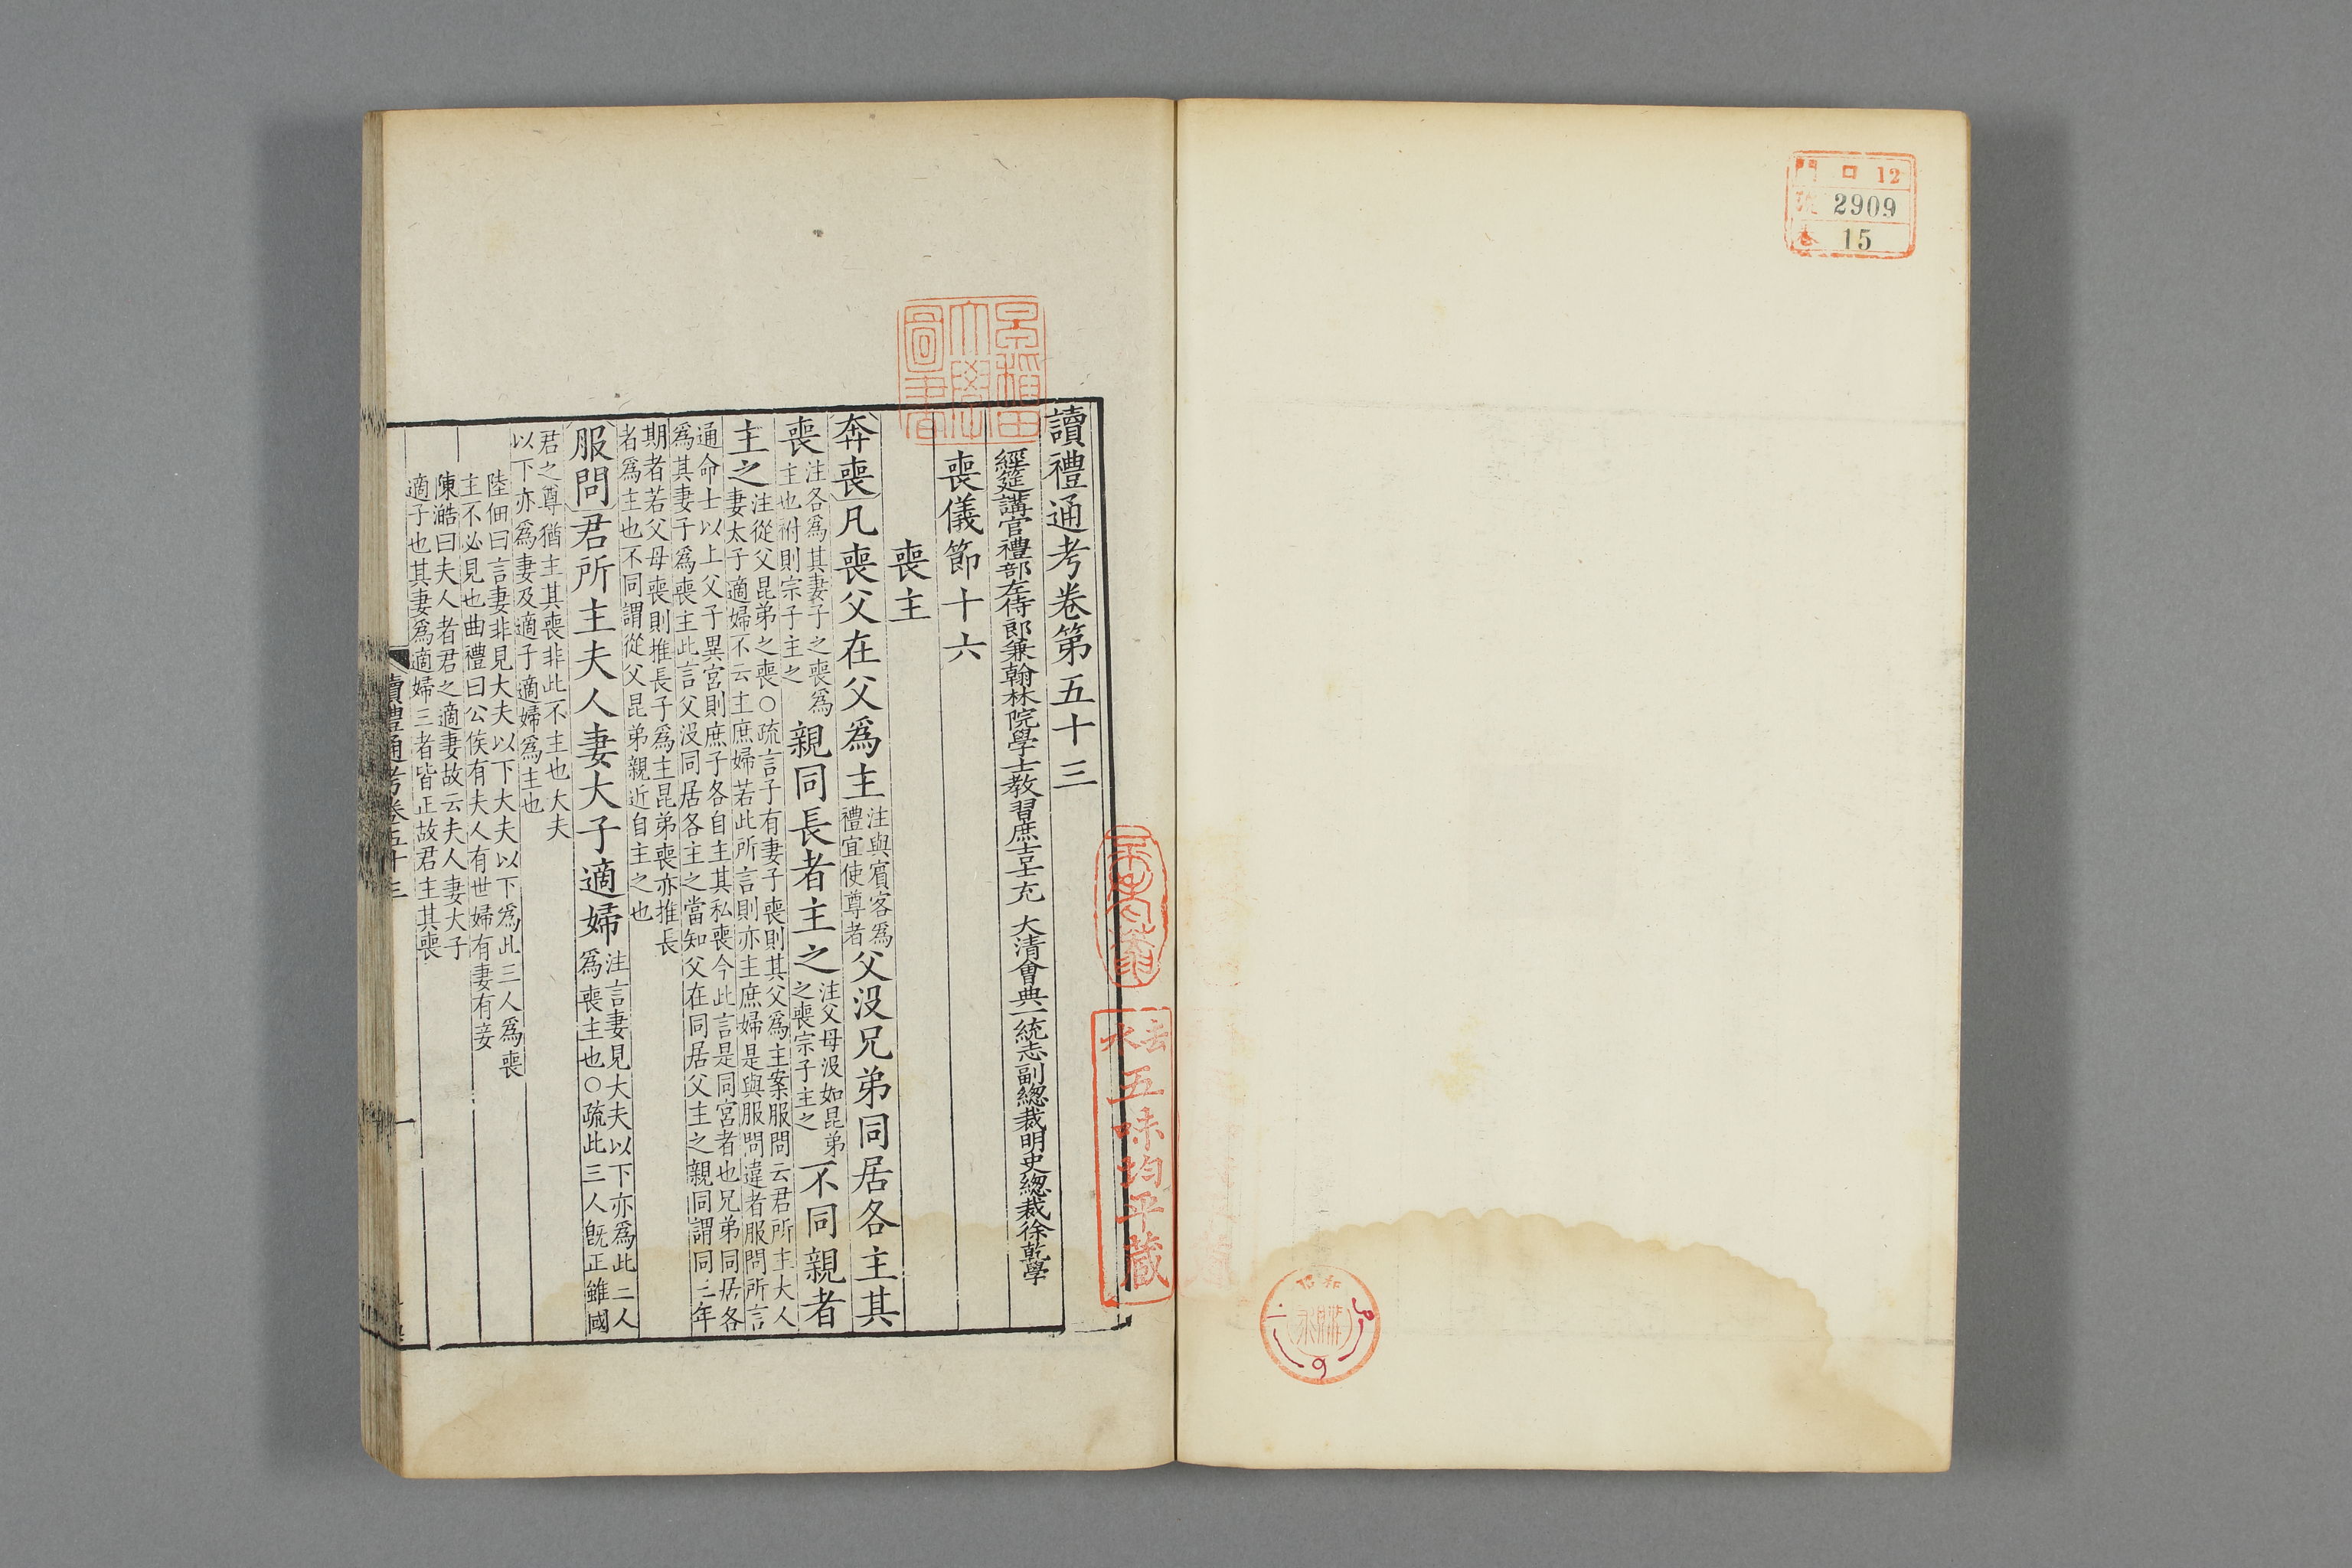 門 ロ 12
號 2909
巻 15
讀禮通考卷第五十三
經筵講官禮部左侍郎兼翰林院學士教習庶吉士充 大清會典一統志副總裁明史總裁徐乾學
喪儀節十六
喪主
奔喪凡喪父在父爲主
注與賓客爲
禮宜使尊者
父没兄弟同居各主其
喪
注各爲其妻子之喪爲
主也祔則宗子主之
親同長者主之
注父母没如昆弟
之喪宗子主之
不同親者
主之
注從父昆弟之喪○疏言子有妻子喪則其父爲主案服問云君所主夫人
妻太子適婦不云主庶婦若此所言則亦主庶婦是與服問違者服問所言
通命士以上父子異宮則庶子各自主其私喪今此言是同宮者也兄弟同居各
爲其妻子爲喪主此言父没同居各主之當知父在同居父主之親同謂同三年
期者若父母喪則推長子爲主昆弟喪亦推長
者爲主也不同謂從父昆弟親近自主之也
服問君所主夫人妻大子適婦
注言妻見大夫以下亦爲此三人
爲喪主也○疏此三人旣正雖國
君之尊猶主其喪非此不主也大夫
以下亦爲妻及適子適婦爲主也
陸佃曰言妻非見大夫以下大夫以下爲此三人爲喪
主不必見也曲禮曰公侯有夫人有世婦有妻有妾
陳澔曰夫人者君之適妻故云夫人妻大子
適子也其妻爲適婦三者皆正故君主其喪
讀禮通考卷五十三
一
早稲田大學圖書
五味均平蔵